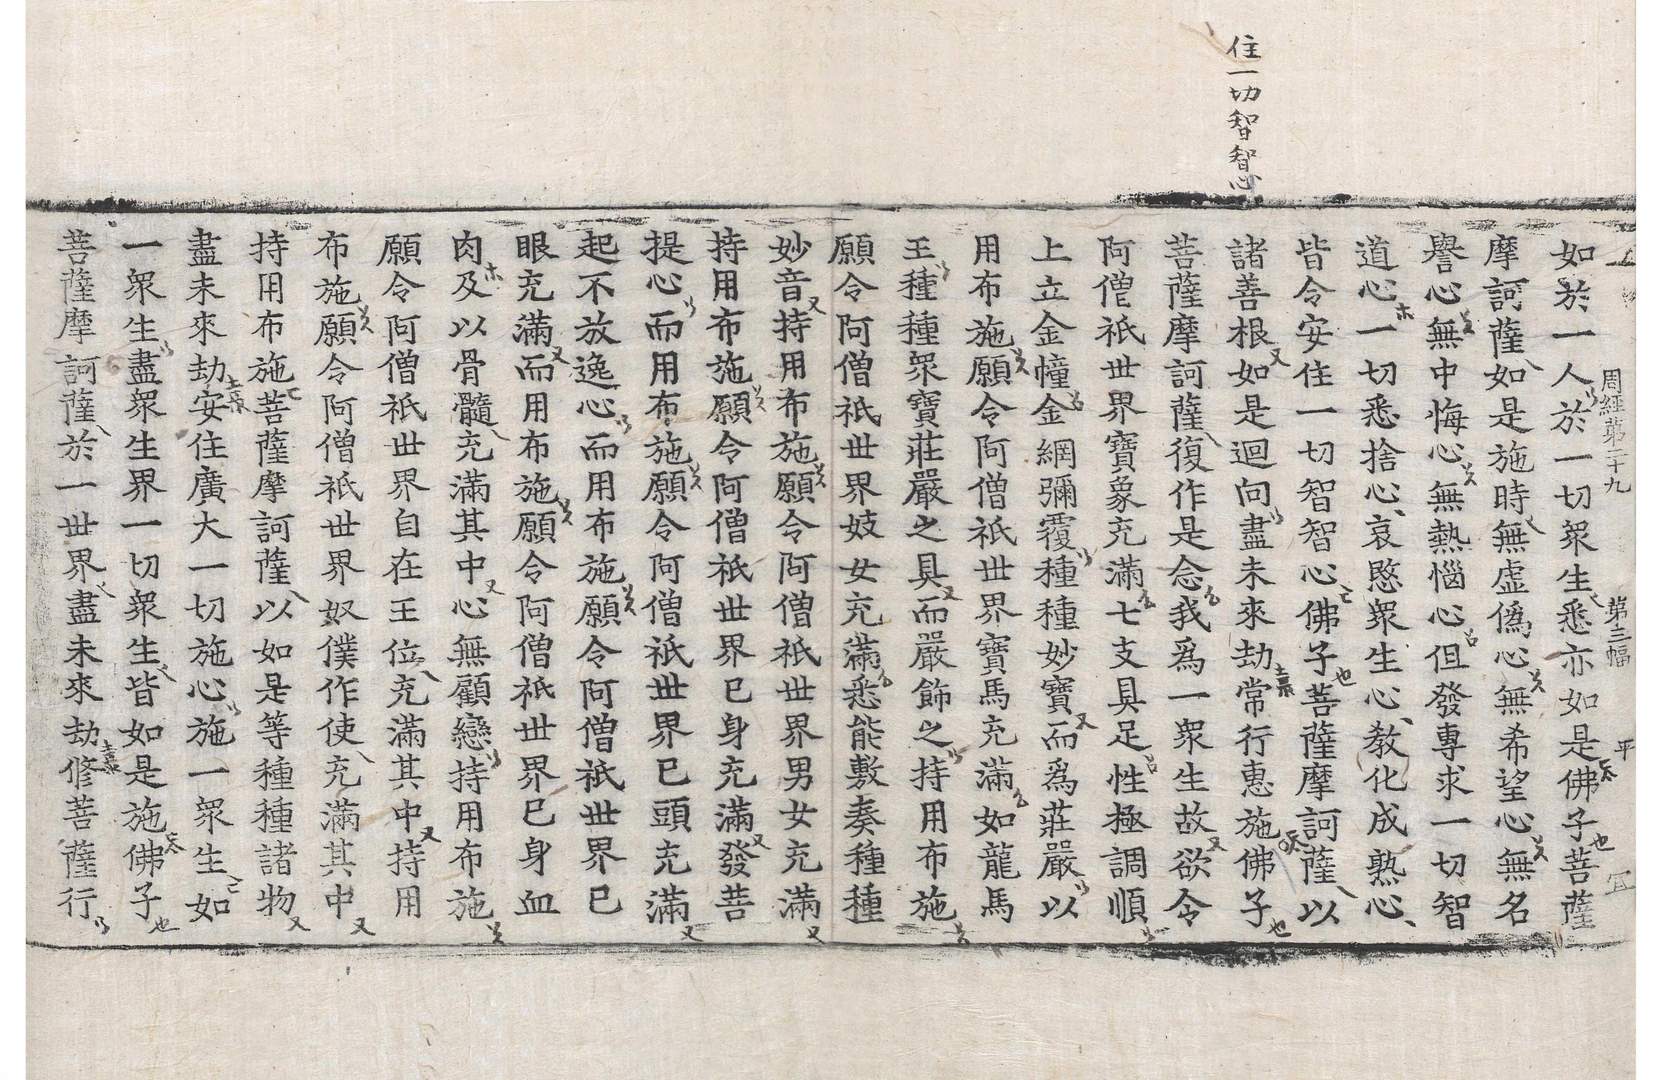 住一切智智心
周經第二十九　第三幅　平　冝
如於一人於一切衆生悉亦如是佛子菩薩
摩訶薩如是施時無虛僞心無希望心無名
譽心無中悔心無熱惱心但發專求一切智
道心一切悉捨心哀愍衆生心教化成熟心
皆令安住一切智智心佛子菩薩摩訶薩以
諸善根如是迴向盡未來劫常行惠施佛子
菩薩摩訶薩復作是念我爲一衆生故欲令
阿僧祇世界寶象充滿七支具足性極調順
上立金幢金網彌覆種種妙寶而爲莊嚴以
用布施願令阿僧祇世界寶馬充滿如龍馬
王種種衆寶莊嚴之具而嚴飾之持用布施
願令阿僧祇世界妓女充滿悉能敷奏種種
妙音持用布施願令阿僧祇世界男女充滿
持用布施願令阿僧祇世界已身充滿發菩
提心而用布施願令阿僧祇世界已頭充滿
起不放逸心而用布施願令阿僧祇世界已
眼充滿而用布施願令阿僧祇世界已身血
肉及以骨髓充滿其中心無顧戀持用布施
願令阿僧祇世界自在王位充滿其中持用
布施願令阿僧祇世界奴僕作使充滿其中
持用布施菩薩摩訶薩以如是等種種諸物
盡未來劫安住廣大一切施心施一衆生如
一衆生盡衆生界一切衆生皆如是施佛子
菩薩摩訶薩於一世界盡未來劫修菩薩行